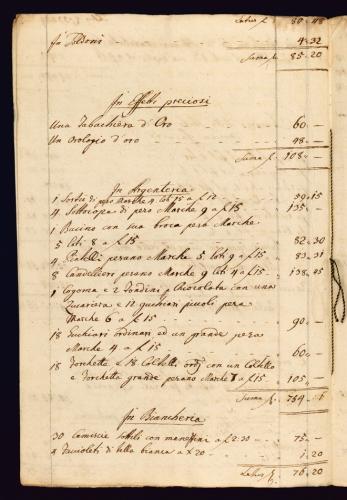 Latus f 80 - 48
In Soldoni 4 - 32
Suma f. 85 - 20
In Effetti preciosi
Una Tabachiera d'Oro 60 - -
Un Orologio d'oro 48 - -
Suma f. 108 - -
In Argenteria
1 di pero Marche 4 Lot 15 a f 12 59 - 15
4 Sottocopa di pero Marche 9 a f 15 135 -
1 Bacino con sua broca pera Marche
5 loti 8 a f 15 82 - 30
4 perano Marche 5 loti 9 a f 15 83 - 31
8 Candellieri perano Marche 9 loti 4 a f 15 138 - 45
1 Cogoma e 2 Tondini p Chiocolata con una
Zucariera e 12 guchiari picoli pera
Marche 6 a f 15 90 - -
18 Guchiari ordinari ed un grande pera
Marche 4 a f 15 60 - -
18 Forchette e 18 Coltelli con un Coltello
e Forchetta grande perano Marche 7 a f 15 105 - -
Suma f. 754 - 1
In Biancheria
30 Camiscie sottili con a f 2:30 75 - -
4 Facioleti di tella bianca a x 20 1 . 20
Latus f. 76 . 20